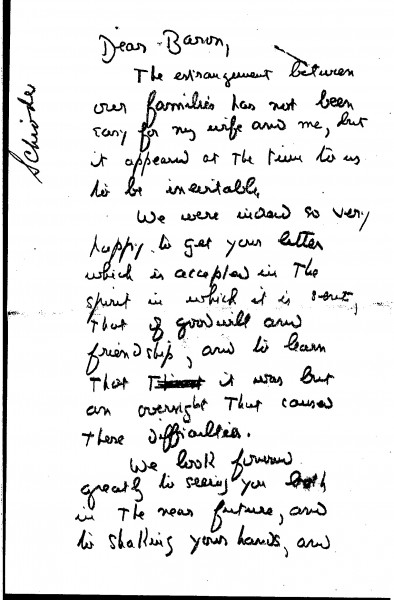 Schroder
Dear Baron,
The estrangement between
our families has not been
easy for my wife and me, but
it appeared at the time to us
to be inevitable.
We were indeed so very
happy to get your letter
which is accepted in the
spirit in which it is sent,
that of goodwill and
friendship, and to learn
that it was but
an oversight that caused
these difficulties.
We look forward
greatly to seeing you both
in the near future, and
to shaking your hands, and